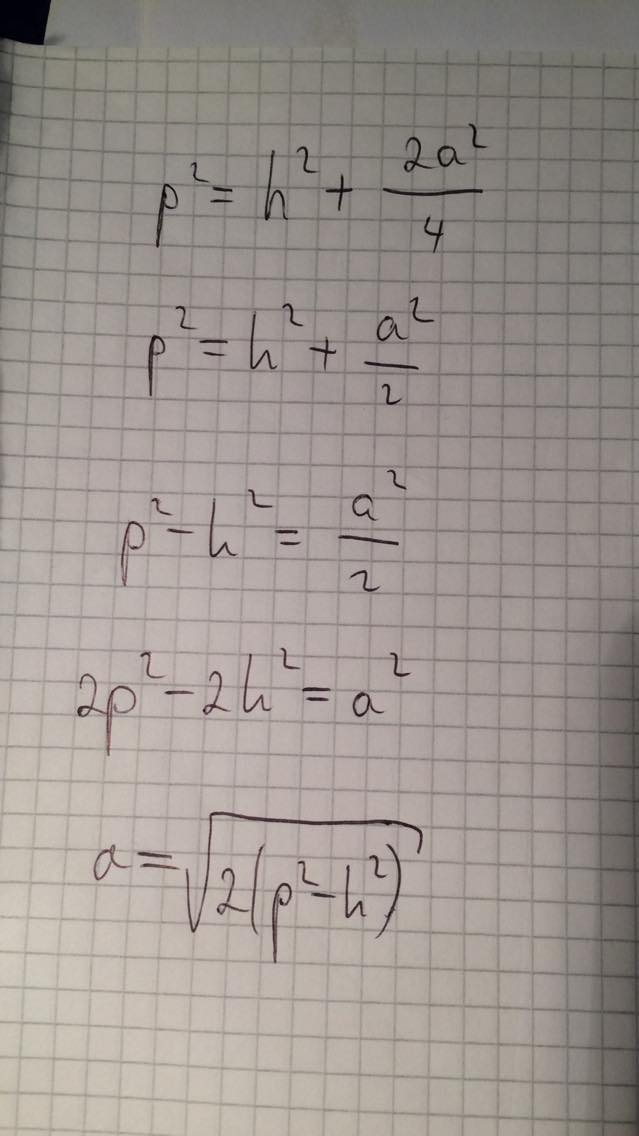 p² = h² + 2a²/4
p² = h² + a²/2
p² - h² = a²/2
2p² - 2h² = a²
a = √(2(p² - h²))